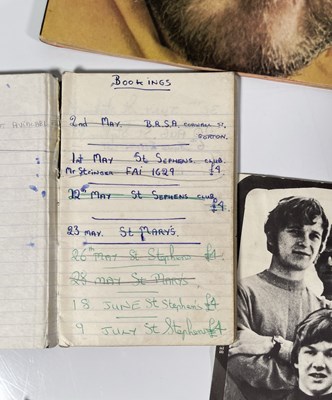 BOOKINGS
2nd MAY. B.R.S.A. ST,
1st MAY ST SEPHENS CLUB.
Mr STRINGER FAI 1629 £4
22nd MAY ST SEPHENS CLUB
£4
23 MAY. ST MARYS.
26th MAY St Stephens £4
28 MAY St MARYS
18 JUNE St Stephens £4
9 JULY St Stephens £4